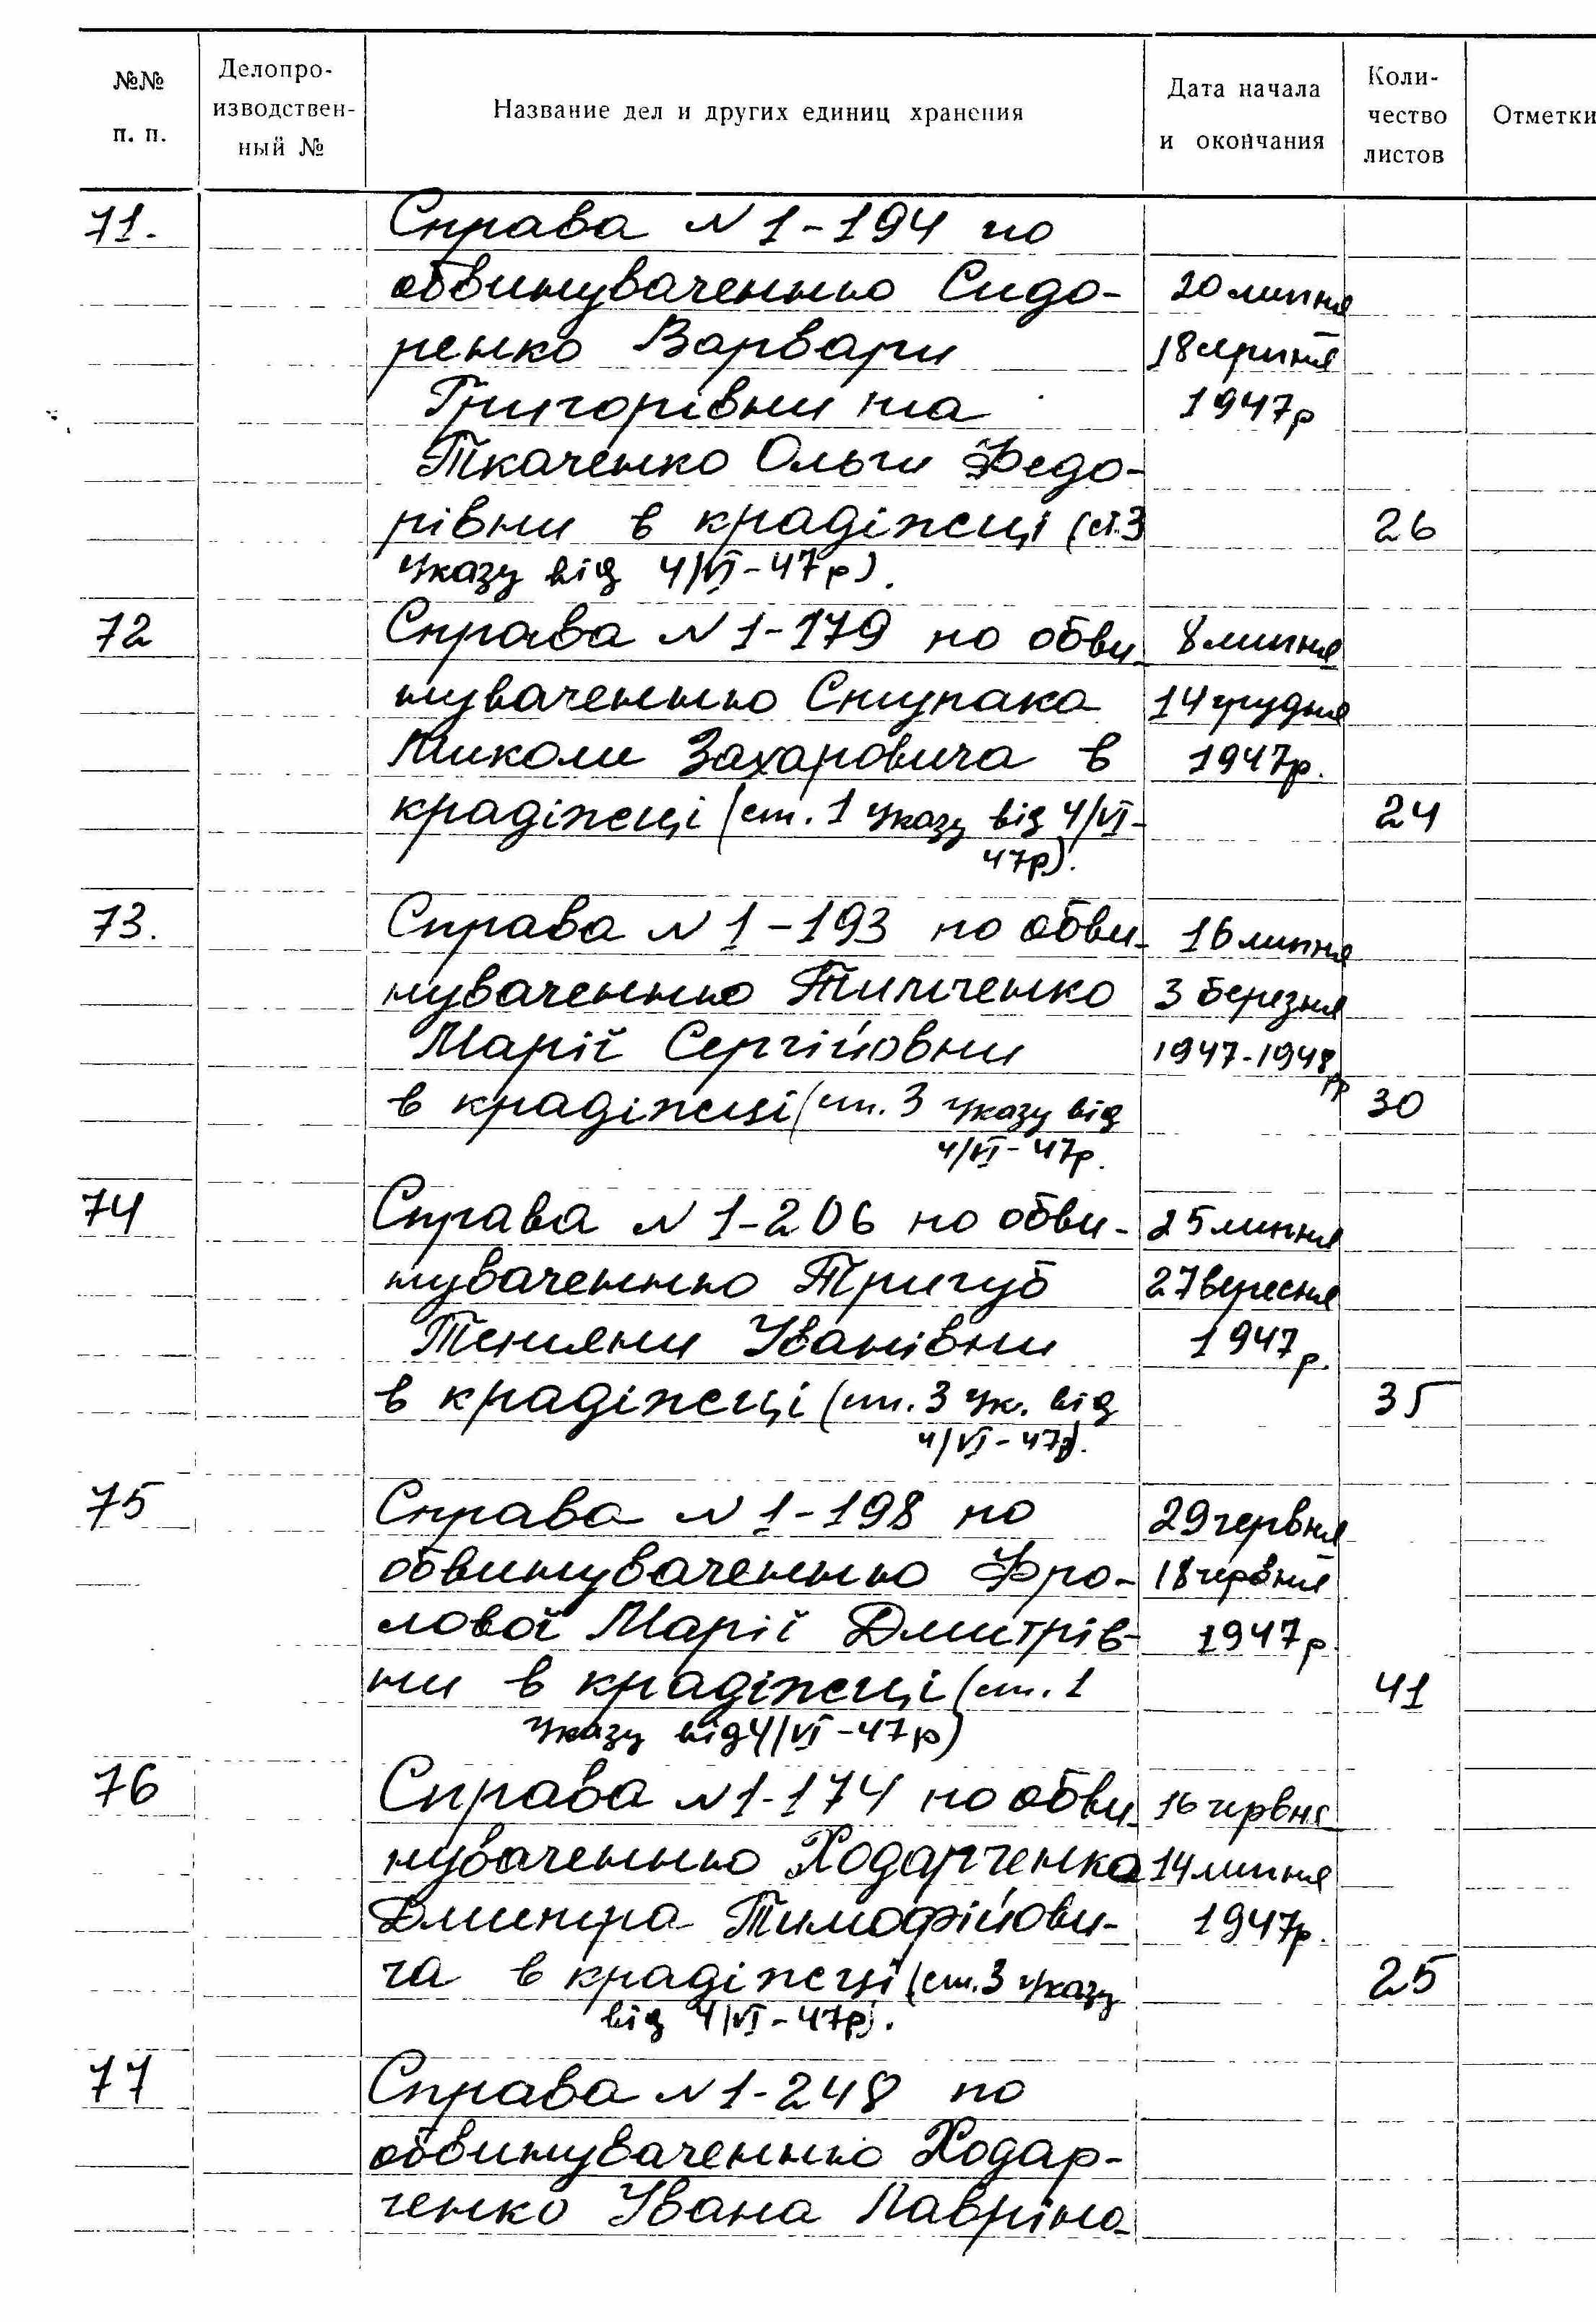 №№ п. п.
Делопро-
изводствен-
ный №
Название дел и других единиц хранения
Дата начала
и окончания
Коли-
чество
листов
Отметки
71. Справа N 1-194 по
обвинуваченню Сидо- 20 липня
ренко Варвари 18 серпня
Григорівни та 1947р
Ткаченко Ольги Федо-
рівни в крадіжці (ст.3 26
Указу від 4/VI-47р).
72 Справа N 1-179 по обви- 8 липня
нуваченню Снупака 14 грудня
Миколи Захаровича в 1947р.
крадіжці (ст. 1 Указу від 4/VI- 24
47р).
73. Справа N 1-193 по обви- 16 липня
нуваченню Тильченко 3 березня
Марії Сергійовни 1947-1948 рр
в крадіжці (ст. 3 Указу від 30
4/VI-47р.
74 Справа N 1-206 по обви- 25 липня
нуваченню Тригуб 27 вересня
Тетяни Іванівни 1947 р.
в крадіжці (ст. 3 Ук. від 35
4/VI-47р).
75 Справа N 1-198 по 29 червня
обвинуваченню Фро- 18 червня
лової Марії Дмитрів- 1947 р.
ни в крадіжці (ст. 1 41
Указу від 4/VI-47р)
76 Справа N 1-174 по обви- 16 червня
нуваченню Ходарченка 14 липня
Дмитра Тимофійови- 1947р.
ча в крадіжці (ст. 3 Указу 25
від 4/VI-47р).
77 Справа N 1-248 по
обвинуваченню Ходар-
ченко Івана Лавріно-